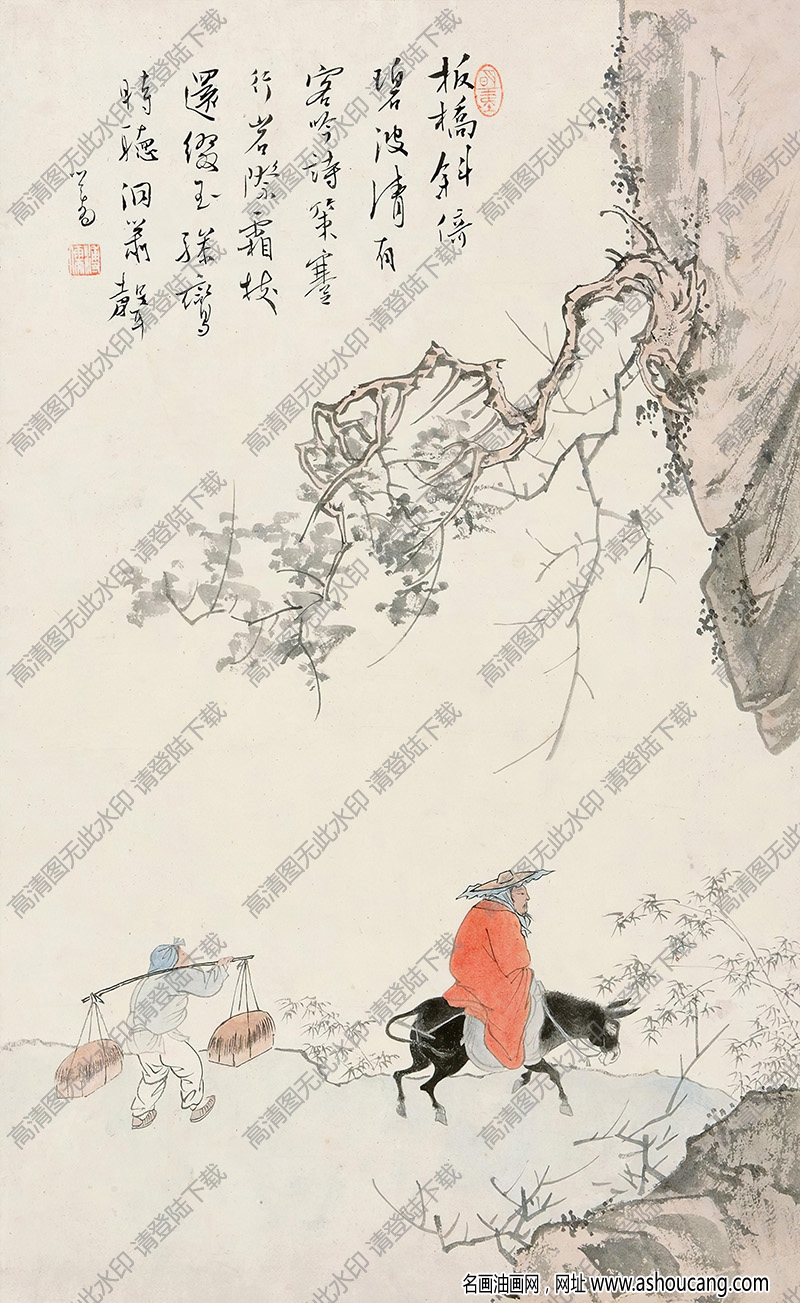 板橋斜倚
碧波清有
客吟詩策蹇
行岩際霜枝
還綴玉驂鸞
時聽洞簫聲
心畬
溥儒
高清图无此水印 请登陆下载
名画油画网，网址 www.ashoucang.com